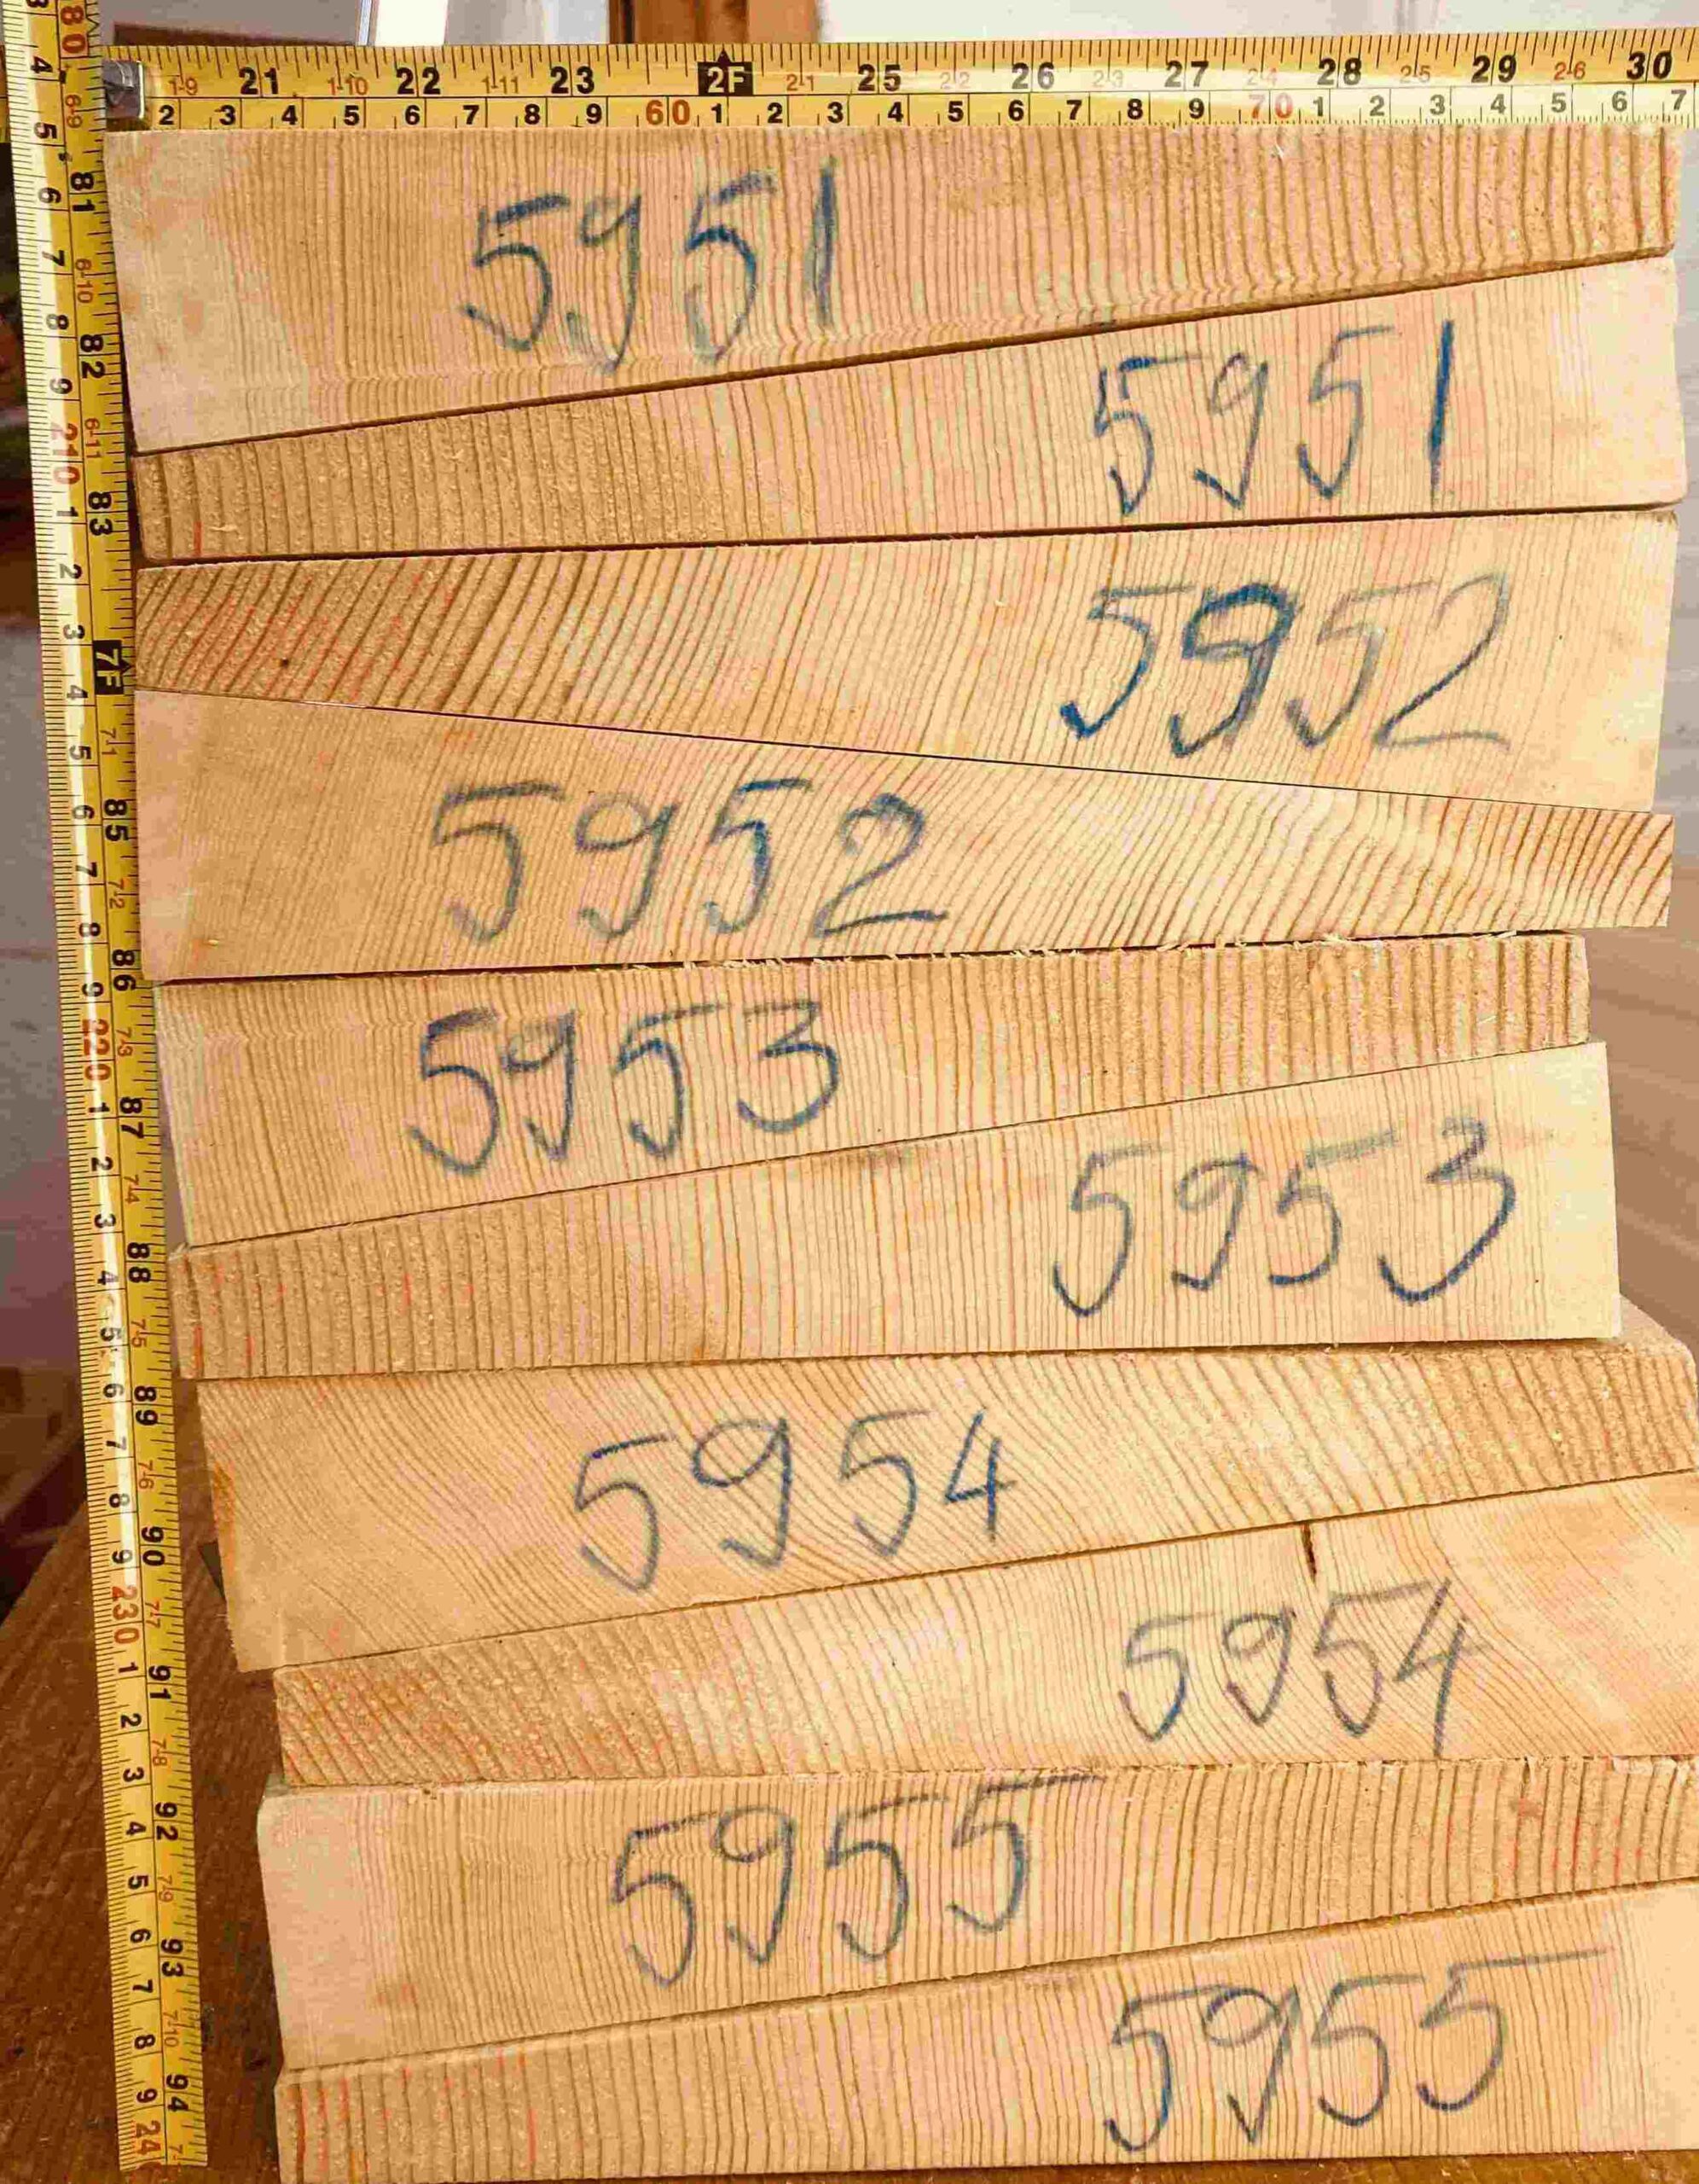 1-9 21 1-10 22 1-11 23 2F 2-1 25 2-2 26 2-3 27 2-4 28 2-5 29 2-6 30
2 3 4 5 6 7 8 9 60 1 2 3 4 5 6 7 8 9 70 1 2 3 4 5 6 7
80 6-9 81 6-10 82 6-11 83 7F 7-1 85 7-2 86 7-3 87 7-4 88 7-5 89 7-6 90 7-7 91 7-8 92 7-9 93 7-10 94
4 5 6 7 8 9 210 1 2 3 4 5 6 7 8 9 220 1 2 3 4 5 6 7 8 9 230 1 2 3 4 5 6 7 8 9 24
5951
5951
5952
5952
5953
5953
5954
5954
5955
5955